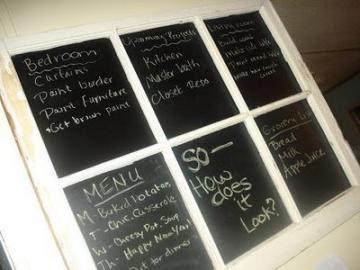 Bedroom
Curtains
Paint border
Paint Furniture
*Get brown paint
Upcoming Projects
Kitchen
Master Bath
Closet Reso
Living room
MENU
M- Baked Potatoes
T- Chic. Casserole
W- Cheesy Pot. Soup
Th- Happy New Year!
Out for dinner
So—
How
does
it
Look?
Grocery List
Bread
Milk
Apple Juice